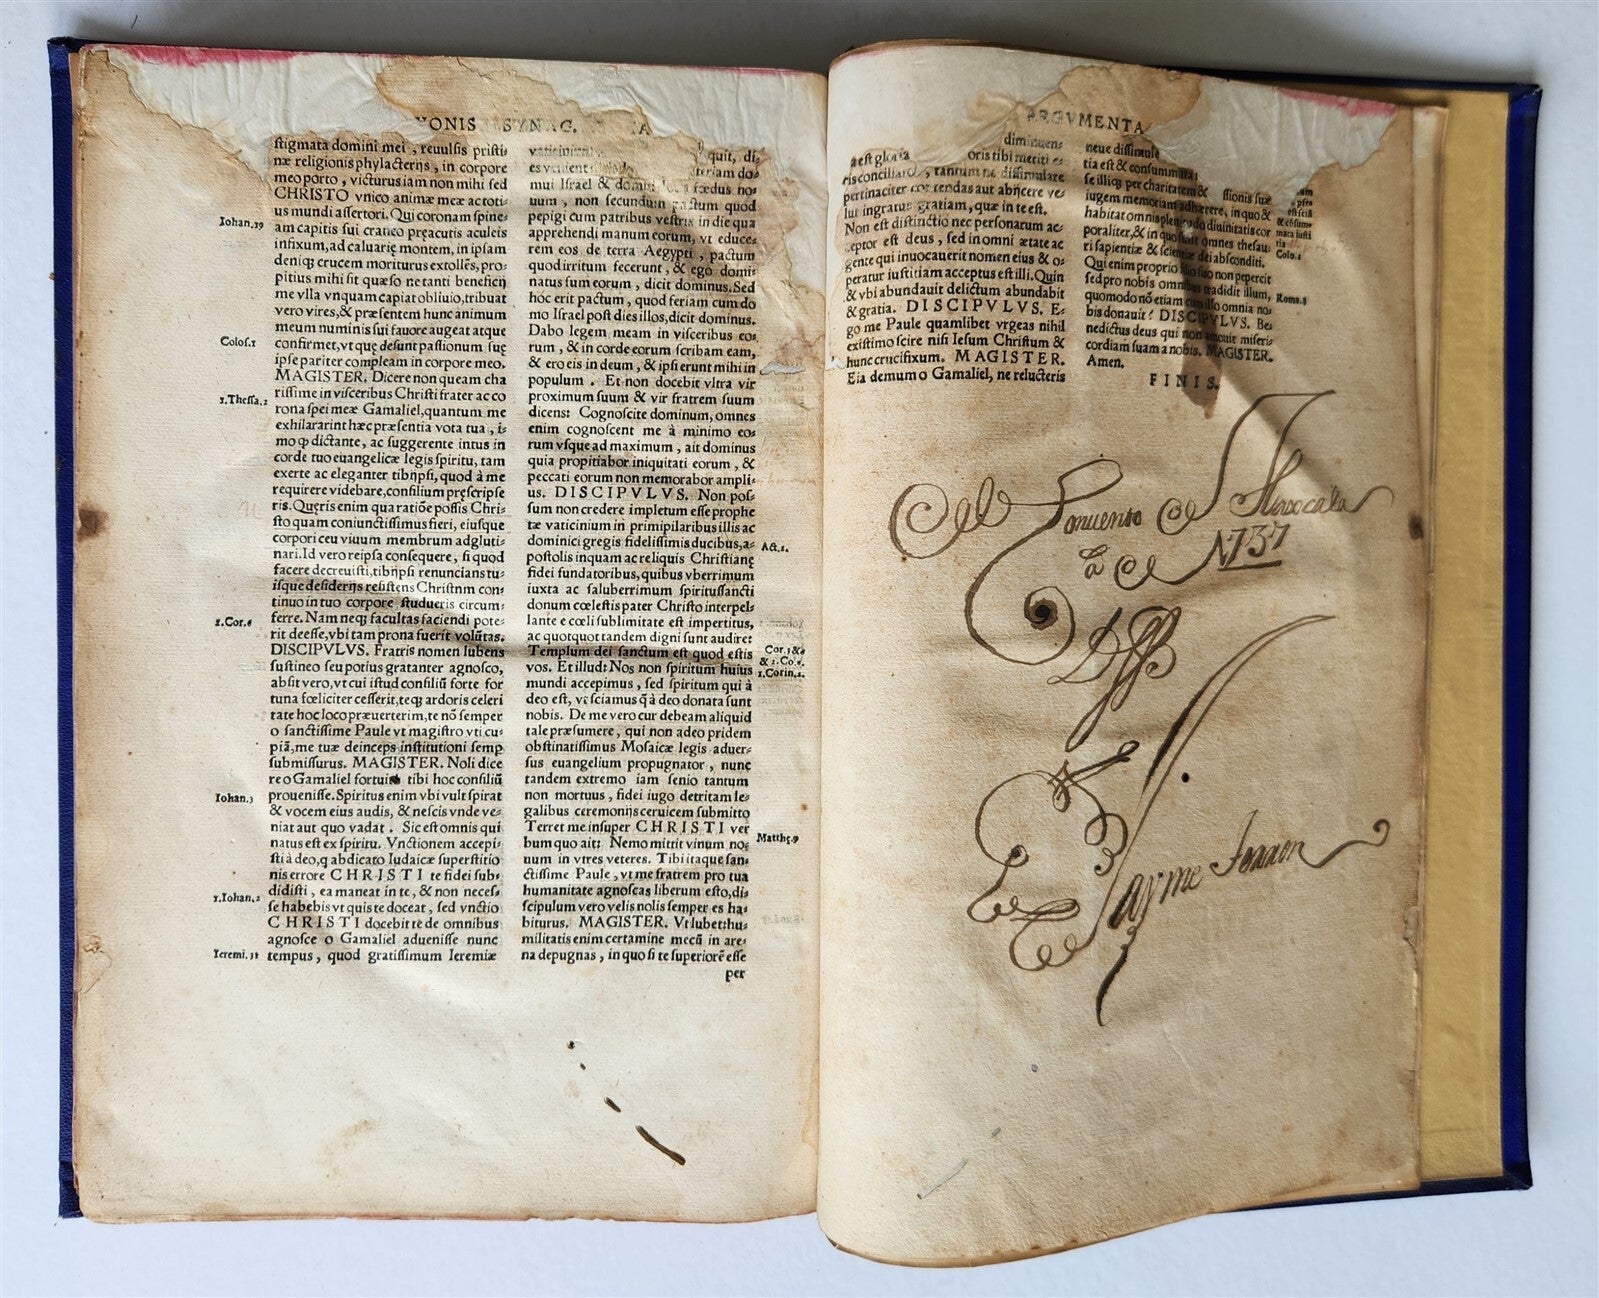 YONIS SYNAG.
stigmata domini mei , reuulsis pristi-
næ religionis phylacterijs , in corpore
meo porto , victurus iam non mihi sed
CHRISTO vnico animæ meæ ac toti-
us mundi assertori. Qui coronam spine-
Iohan.19
am capitis sui craneo præacutis aculeis
infixum, ad caluarię montem, in ipsam
deniqȝ crucem moriturus extollēs, pro-
pitius mihi sit quæso ne tanti beneficij
me vlla vnquam capiat obliuio, tribuat
vero vires, & præsentem hunc animum
meum numinis sui fauore augeat atque
Colos.1
confirmet, vt quę desunt passionum suę
ipse pariter compleam in corpore meo.
MAGISTER. Dicere non queam cha
rissime in visceribus Christi frater ac co
1.Thessa.2
rona spei meæ Gamaliel, quantum me
exhilararint hæc præsentia vota tua , i-
mo ꝙ dictante, ac suggerente intus in
corde tuo euangelicæ legis spiritu, tam
exerte ac eleganter tibijpsi, quod à me
requirere videbare, consilium pręscripse
ris. Quęris enim qua ratiōe possis Chri-
sto quam coniunctissimus fieri, eiusque
corpori ceu viuum membrum adgluti-
nari. Id vero reipsa consequere , si quod
facere decreuisti, tibijpsi renuncians tu-
isque desiderijs resistens Christum con-
tinuo in tuo corpore studueris circum-
2.Cor.4
ferre. Nam neqȝ facultas faciendi pote-
rit deesse, vbi tam prona fuerit volūtas.
DISCIPVLVS. Fratris nomen lubens
sustineo seu potius gratanter agnosco,
absit vero, vt cui istud consiliū forte for
tuna fœliciter cesserit, teqȝ ardoris celeri
tate hoc loco præuerterim, te nō semper
o sanctissime Paule vt magistro vti cu-
piā, me tuæ deinceps institutioni semp
submissurus. MAGISTER. Noli dice
re o Gamaliel fortuito tibi hoc consiliū
Iohan.3
prouenisse. Spiritus enim vbi vult spirat
& vocem eius audis, & nescis vnde ve-
niat aut quo vadat . Sic est omnis qui
natus est ex spiritu. Vnctionem accepi-
sti à deo, q abdicato Iudaicæ superstitio
nis errore CHRISTI te fidei sub-
1.Iohan.2
didisti , ea maneat in te , & non neces-
se habebis vt quis te doceat , sed vnctio
CHRISTI docebit te de omnibus
agnosce o Gamaliel aduenisse nunc
Ieremi.31
tempus , quod gratissimum Ieremiæ
quit, di-
es venient
mui Israel & domui fœdus no-
uum , non secundum pactum quod
pepigi cum patribus vestris in die qua
apprehendi manum eorum, vt educe-
rem eos de terra Aegypti , pactum
quod irritum fecerunt , & ego domi-
natus sum eorum , dicit dominus. Sed
hóc erit pactum , quod feriam cum do
mo Israel post dies illos, dicit dominus.
Dabo legem meam in visceribus eo-
rum , & in corde eorum scribam eam,
& ero eis in deum , & ipsi erunt mihi in
populum . Et non docebit vltra vir
proximum suum & vir fratrem suum
dicens: Cognoscite dominum, omnes
enim cognoscent me à minimo eo-
rum vsque ad maximum , ait dominus
quia propitiabor iniquitati eorum , &
peccati eorum non memorabor ampli-
us. DISCIPVLVS. Non pos-
sum non credere impletum esse prophe
tæ vaticinium in primipilaribus illis ac
dominici gregis fidelissimis ducibus, a-
Act.2.
postolis inquam ac reliquis Christianę
fidei fundatoribus, quibus vberrimum
iuxta ac saluberrimum spiritussancti
donum cœlestis pater Christo interpel-
lante e cœli sublimitate est impertitus,
ac quotquot tandem digni sunt audire:
Templum dei sanctum est quod estis
Cor.3&6
vos. Et illud: Nos non spiritum huius
& 2.Co.6.
1.Corin.2.
mundi accepimus , sed spiritum qui à
deo est, vt sciamus q̄ à deo donata sunt
nobis. De me vero cur debeam aliquid
tale præsumere, qui non adeo pridem
obstinatissimus Mosaicæ legis aduer-
sus euangelium propugnator , nunc
tandem extremo iam senio tantum
non mortuus , fidei iugo detritam le-
galibus ceremonijs ceruicem submitto
Terret me insuper CHRISTI ver
Matthę.9
bum quo ait: Nemo mittit vinum no-
uum in vtres veteres. Tibi itaque san-
ctissime Paule , vt me fratrem pro tua
humanitate agnoscas liberum esto, di-
scipulum vero velis nolis semper es ha-
biturus. MAGISTER. Vt lubet: hu-
militatis enim certamine mecū in are-
na depugnas , in quo si te superiorē esse
per
ARGVMENTA
a est gloria
oris tibi meriti
pertinaciter contendas aut abijcere ve-
lut ingratus gratiam, quæ in te est.
Non est distinctio nec personarum ac-
ceptor est deus , sed in omni ætate ac
gente qui inuocauerit nomen eius & o-
peratur iustitiam acceptus est illi. Quin
& vbi abundauit delictum abundabit
& gratia. DISCIPVLVS. E-
go me Paule quamlibet vrgeas nihil
existimo scire nisi Iesum Christum &
hunc crucifixum. MAGISTER.
Eia demum o Gamaliel, ne relucteris
neue dissimule
tia est & consummata:
se illiqȝ per charitatem & ssionis suæ
iugem memoriam adhærere, in quo &
habitat omnis plenitudo diuinitatis cor
poraliter, & in quo sunt omnes thesau-
ri sapientiæ & scientiæ dei absconditi.
Colo.2
Qui enim proprio filio suo non pepercit
sed pro nobis omnibus tradidit illum,
Roma.8
quomodo nō etiam cum illo omnia no-
bis donauit? DISCIPVLVS. Be-
nedictus deus qui non amouit miseri-
cordiam suam a nobis. MAGISTER.
Amen.
FINIS.
Del Conuento de Tlaxcala
1737